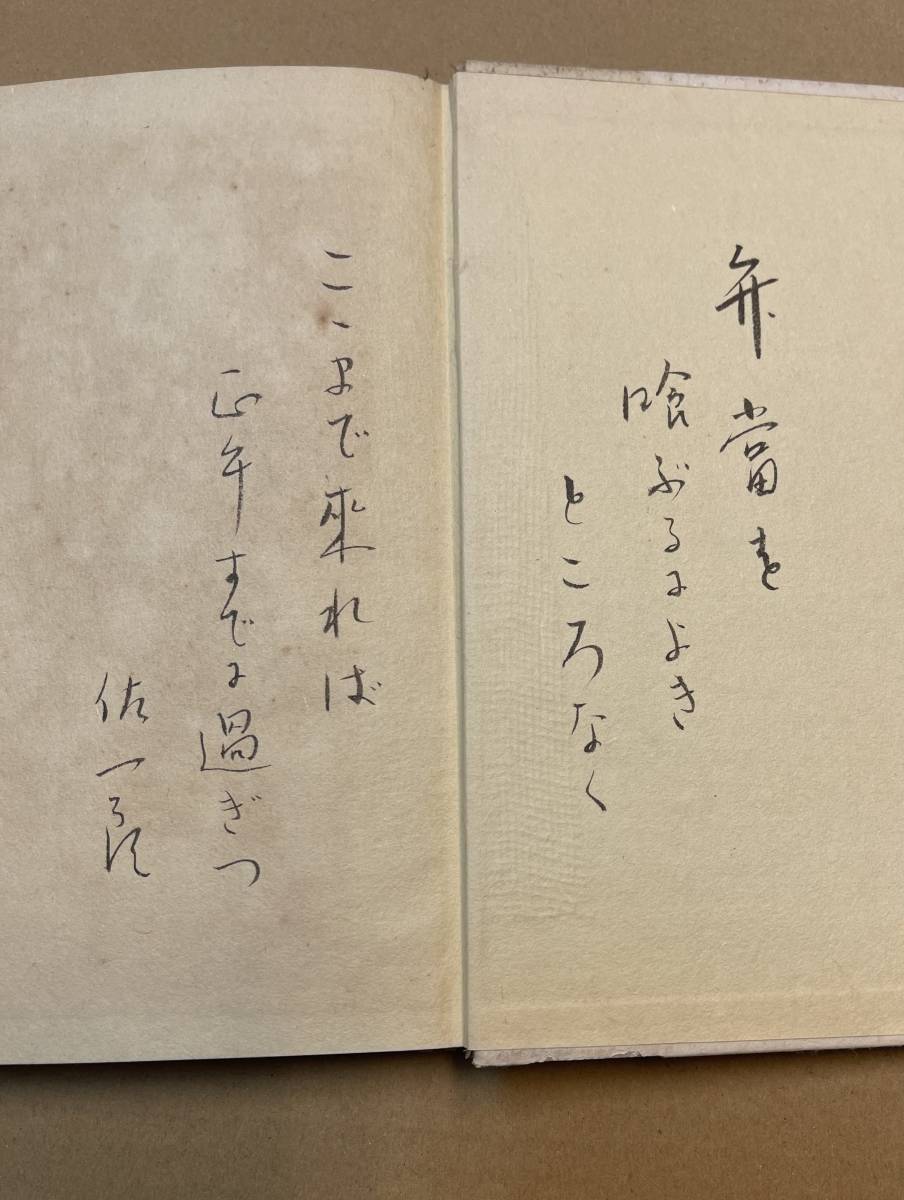 弁當を
喰ぶるによき
ところなく
こゝまで來れば
正午すでに過ぎつ
佐一郎